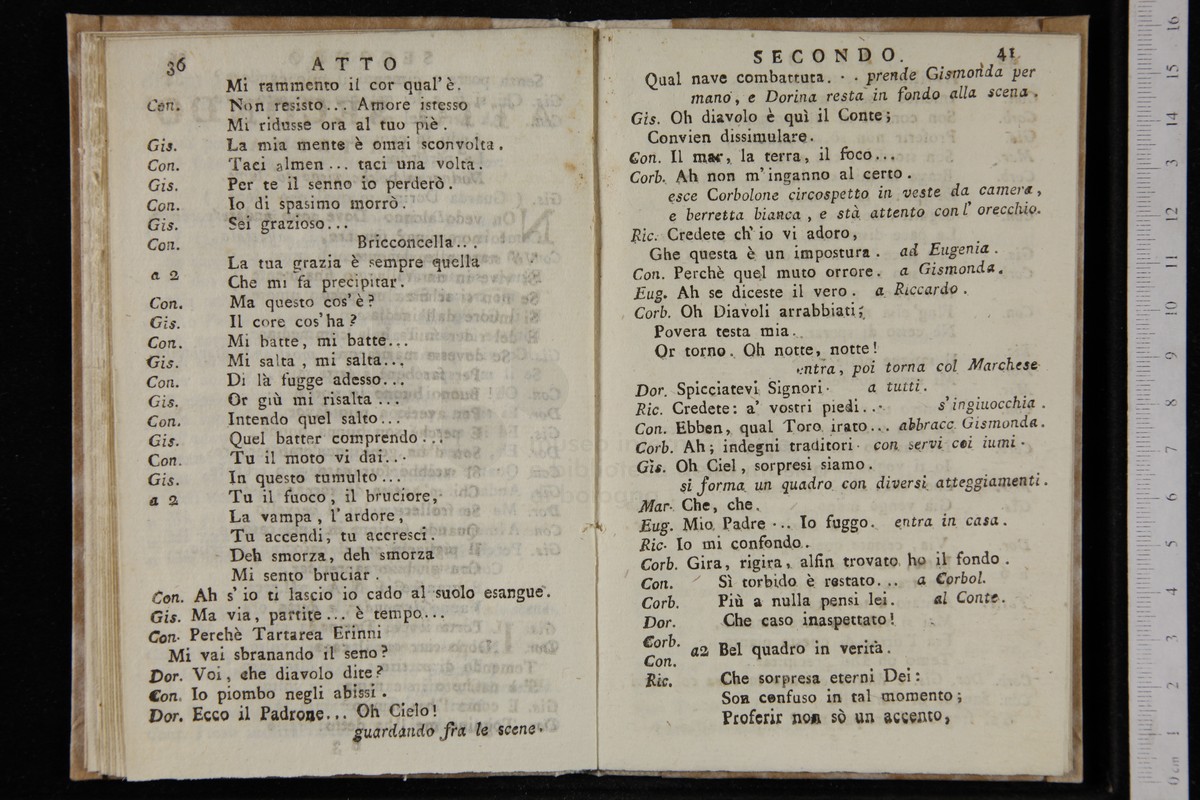 36 ATTO
Mi rammento il cor qual' è.
Con. Non resisto... Amore istesso
Mi ridusse ora al tuo piè.
Gis. La mia mente è omai sconvolta.
Con. Taci almen... taci una volta.
Gis. Per te il senno io perderò.
Con. Io di spasimo morrò.
Gis. Sei grazioso...
Con. Bricconcella...
a 2 La tua grazia è sempre quella
Che mi fà precipitar.
Con. Ma questo cos' è?
Gis. Il core cos' ha?
Con. Mi batte, mi batte...
Gis. Mi salta, mi salta...
Con. Di là fugge adesso...
Gis. Or giù mi risalta...
Con. Intendo quel salto...
Gis. Quel batter comprendo...
Con. Tu il moto vi dai...
Gis. In questo tumulto...
a 2 Tu il fuoco, il bruciore,
La vampa, l' ardore,
Tu accendi, tu accresci.
Deh smorza, deh smorza
Mi sento bruciar.
Con. Ah s' io ti lascio io cado al suolo esangue.
Gis. Ma via, partite... è tempo...
Con. Perchè Tartarea Erinni
Mi vai sbranando il seno?
Dor. Voi, che diavolo dite?
Con. Io piombo negli abissi.
Dor. Ecco il Padrone... Oh Cielo!
guardando fra le scene.
SECONDO. 41
Qual nave combattuta. . . prende Gismonda per
mano, e Dorina resta in fondo alla scena.
Gis. Oh diavolo è quì il Conte;
Convien dissimulare.
Con. Il mar, la terra, il foco...
Corb. Ah non m' inganno al certo.
esce Corbolone circospetto in veste da camera,
e berretta bianca, e stà attento con l' orecchio.
Ric. Credete ch' io vi adoro,
Ghe questa è un impostura. ad Eugenia.
Con. Perchè quel muto orrore. a Gismonda.
Eug. Ah se diceste il vero. a Riccardo.
Corb. Oh Diavoli arrabbiati;
Povera testa mia.
Or torno. Oh notte, notte!
entra, poi torna col Marchese
Dor. Spicciatevi Signori. a tutti.
Ric. Credete: a' vostri piedi... s' inginocchia.
Con. Ebben, qual Toro irato... abbracc. Gismonda.
Corb. Ah; indegni traditori. con servi coi lumi.
Gis. Oh Ciel, sorpresi siamo.
si forma un quadro con diversi atteggiamenti.
Mar. Che, che.
Eug. Mio Padre... Io fuggo. entra in casa.
Ric. Io mi confondo.
Corb. Gira, rigira, alfin trovato ho il fondo.
Con. Sì torbido è restato... a Corbol.
Corb. Più a nulla pensi lei. al Conte.
Dor. Che caso inaspettato!
Corb.
Con. a2 Bel quadro in verità.
Ric. Che sorpresa eterni Dei:
Son confuso in tal momento;
Proferir non sò un accento,